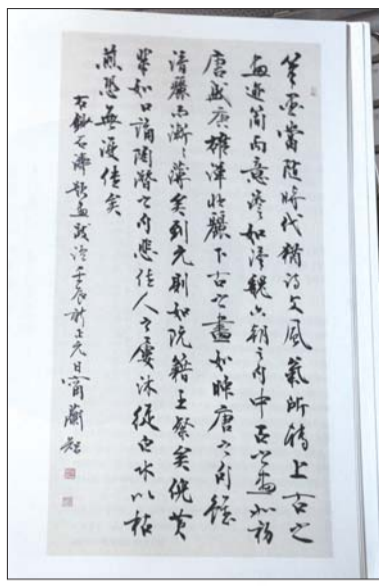 笔墨當隨時代猶詩文風氣所轉上古之
畫迹簡而意淡如漢魏六朝之句中古之畫如初
唐盛唐雄渾壯麗下古之畫如晚唐之句雖
清麗而漸々薄矣到元則如阮籍王粲矣倪黄
輩如口誦陶潜之句悲佳人之屢沐從白水以枯
煎恐無復佳矣
右錄石濤題畫跋語壬辰新正元日